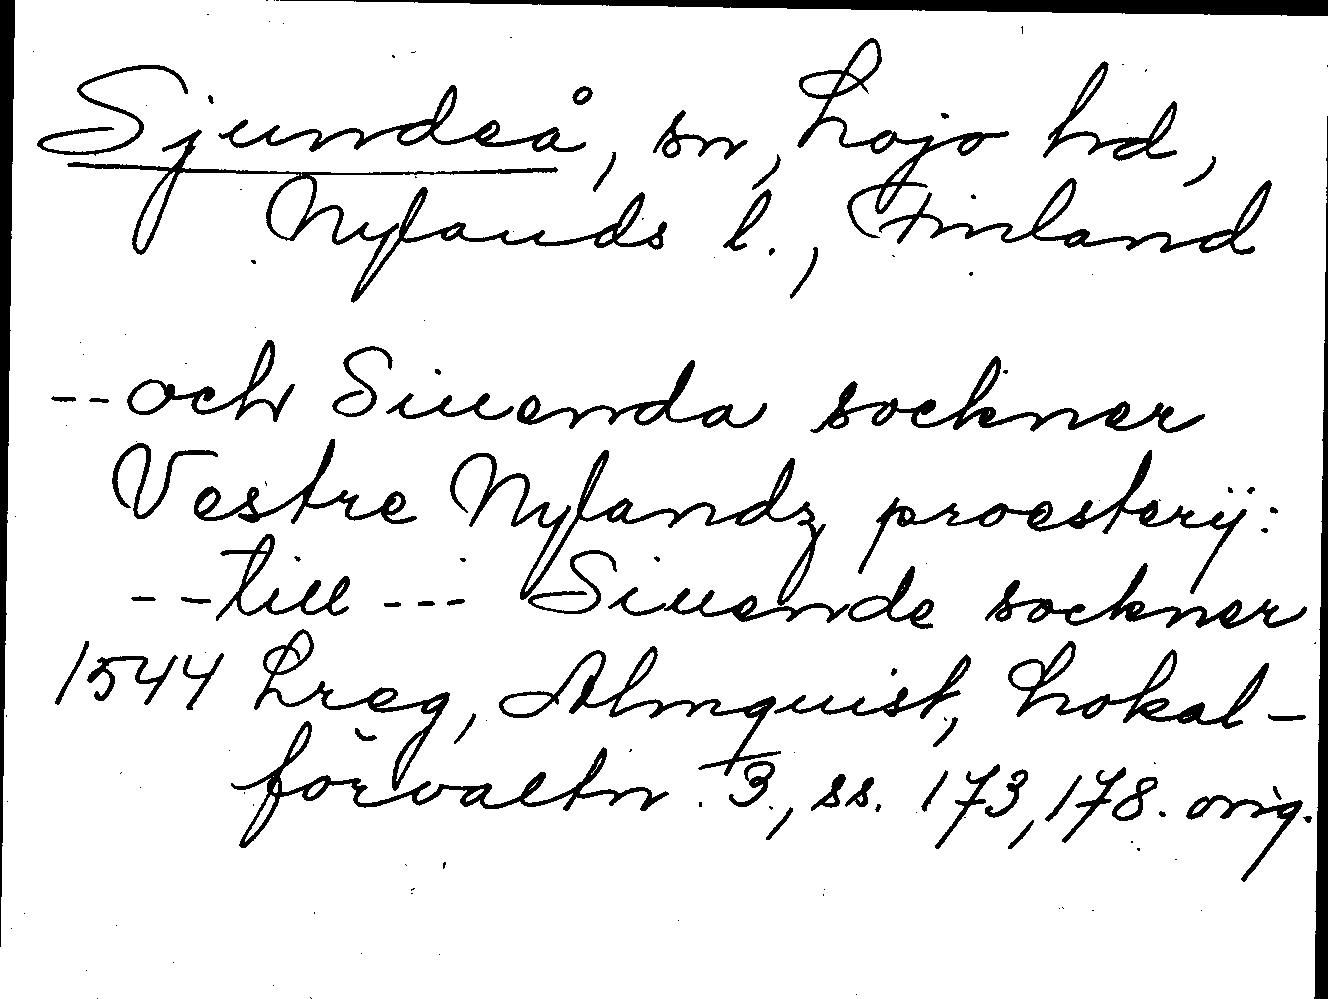 Sjundeå, sn, Lojo hd,
Nylands l., Finland
-- och Siuenda sockner
Vestre Nylandz proesterij:
-- till --- Siuende sockner
1544 Lreg, Almquist, Lokal-
förvaltn. 3, ss. 173, 178. orig.